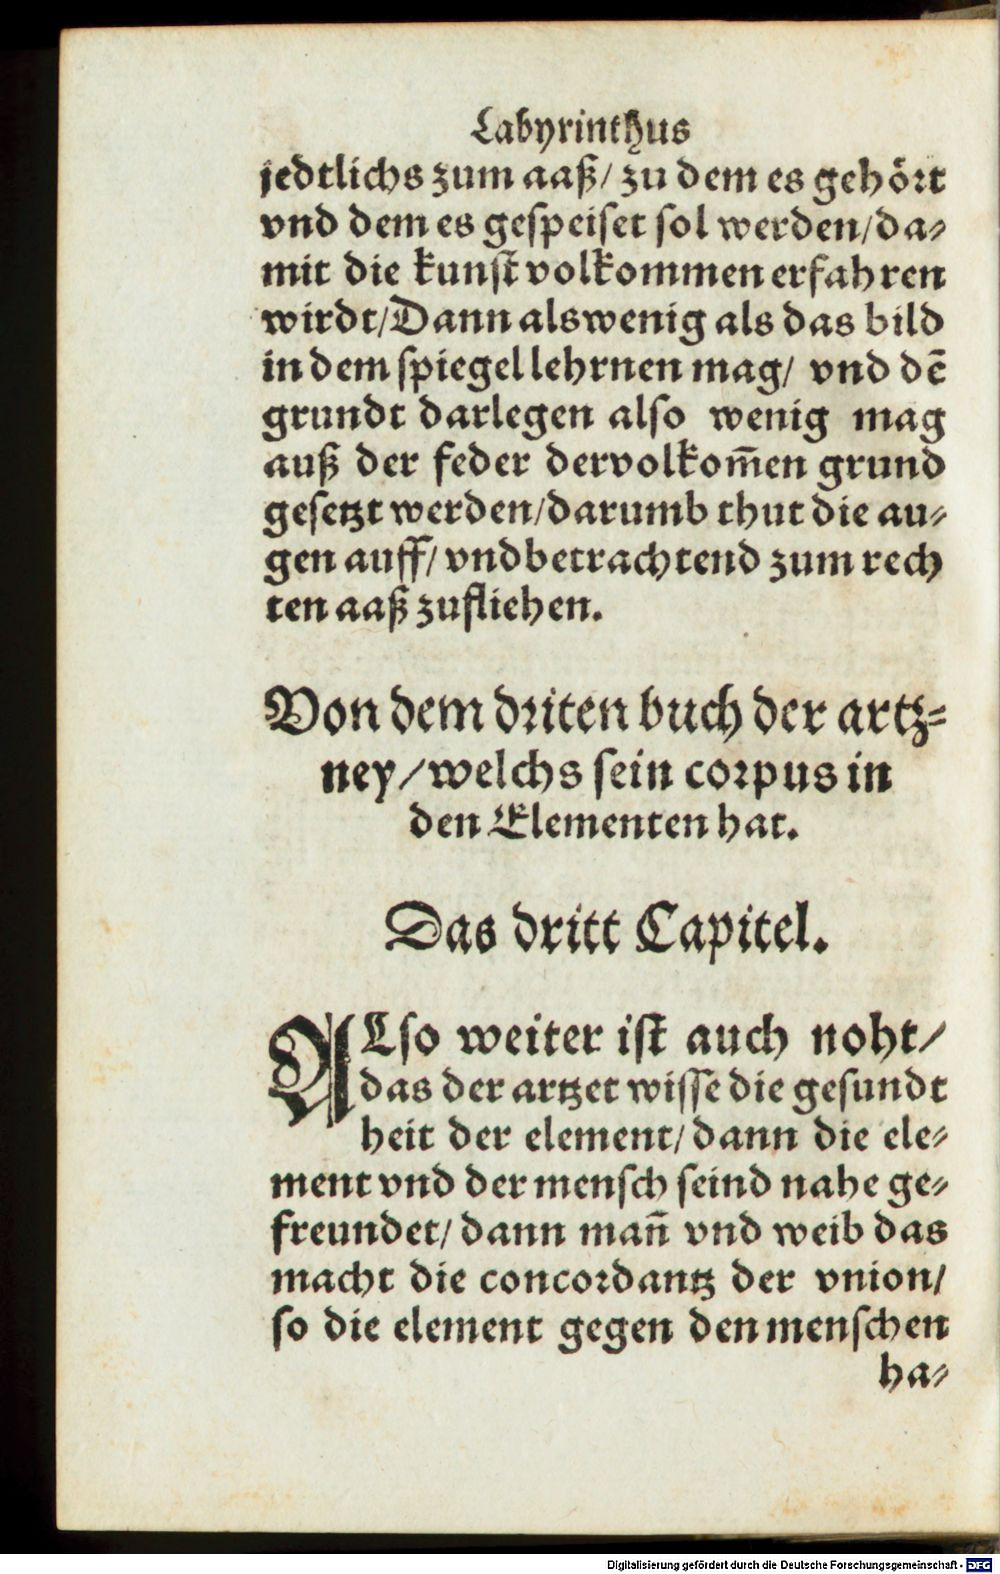 Labyrinthus
jedtlichs zum aaß/ zu dem es gehört
vnd dem es gespeiset sol werden/da⸗
mit die kunst volkommen erfahren
wirdt/Dann alswenig als das bild
in dem spiegel lehrnen mag/ vnd dē
grundt darlegen also wenig mag
auß der feder dervolkom̄en grund
gesetzt werden/darumb thut die au⸗
gen auff/ vnd betrachtend zum rech
ten aaß zufliehen.
Von dem driten buch der artz⸗
ney/welchs sein corpus in
den Elementen hat.
Das dritt Capitel.
ALso weiter ist auch noht/
das der artzet wisse die gesundt
heit der element/dann die ele⸗
ment vnd der mensch seind nahe ge⸗
freundet/ dann man̄ vnd weib das
macht die concordantz der vnion/
so die element gegen den menschen
ha⸗
Digitalisierung gefördert durch die Deutsche Forschungsgemeinschaft - DFG